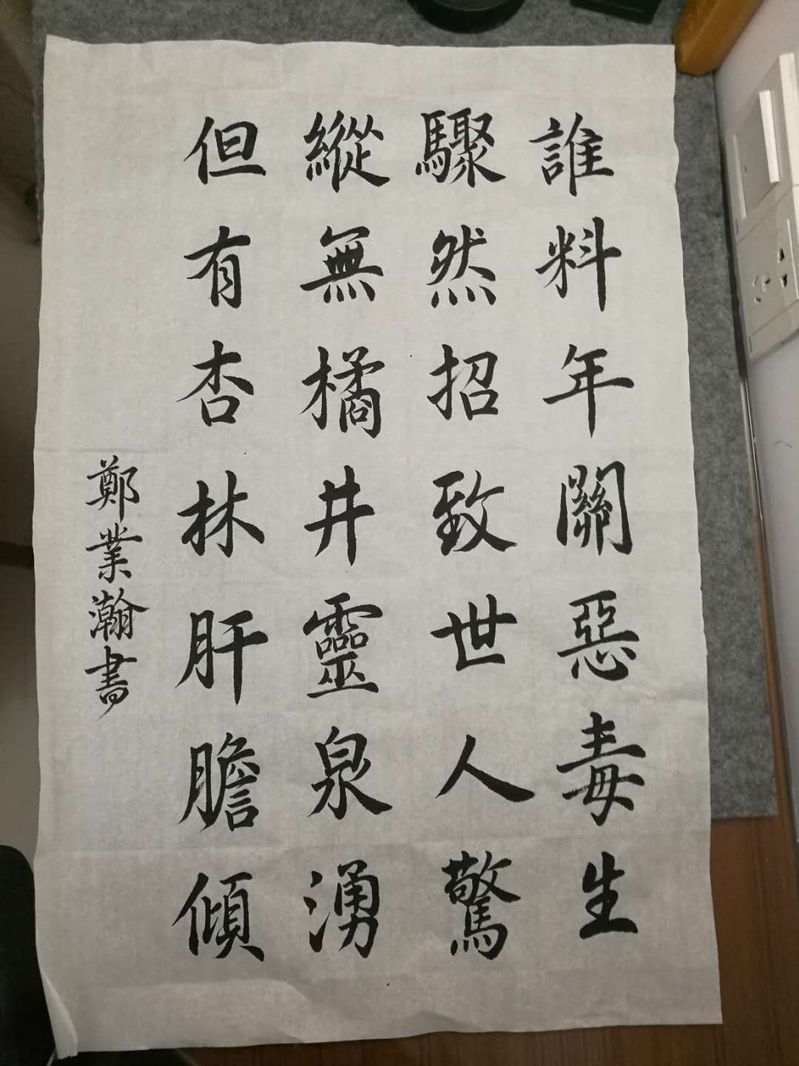 誰料年關惡毒生
驟然招致世人驚
縱無橘井靈泉湧
但有杏林肝膽傾
鄭業瀚書